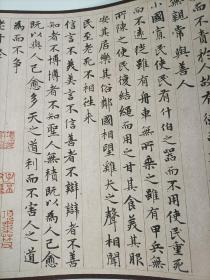 而不責於
無親常與善人
小國寡民使民有什伯之器而不用使民重死
而不遠徙雖有舟車無所乘之雖有甲兵無
所陳之使民復結繩而用之甘其食美其服
安其居樂其俗鄰國相望雞犬之聲相聞
民至老死不相往來
信言不美美言不信善者不辯辯者不善
知者不博博者不知聖人無積既以為人己愈
既以與人己愈多天之道利而不害人之道
為而不爭